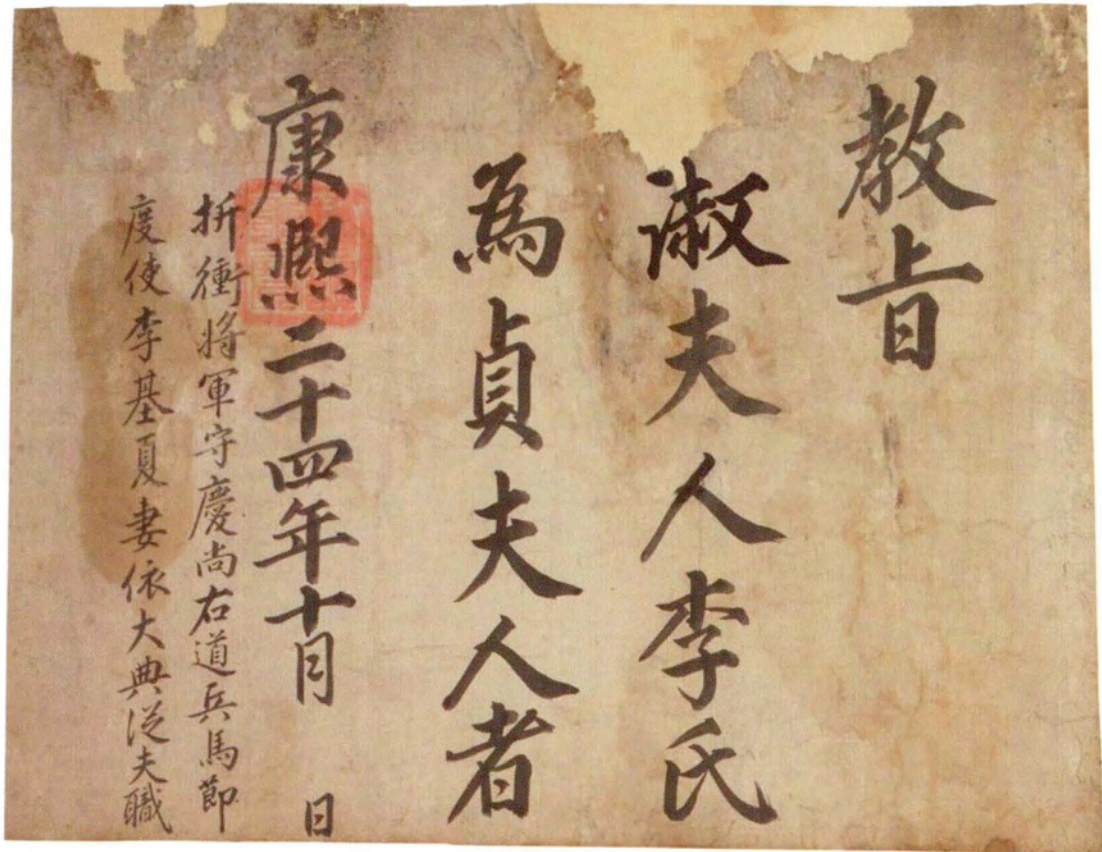 教旨
淑夫人李氏
為貞夫人者
康熙二十四年十月 日
折衝將軍守慶尚右道兵馬節
度使李基夏妻依大典從夫職